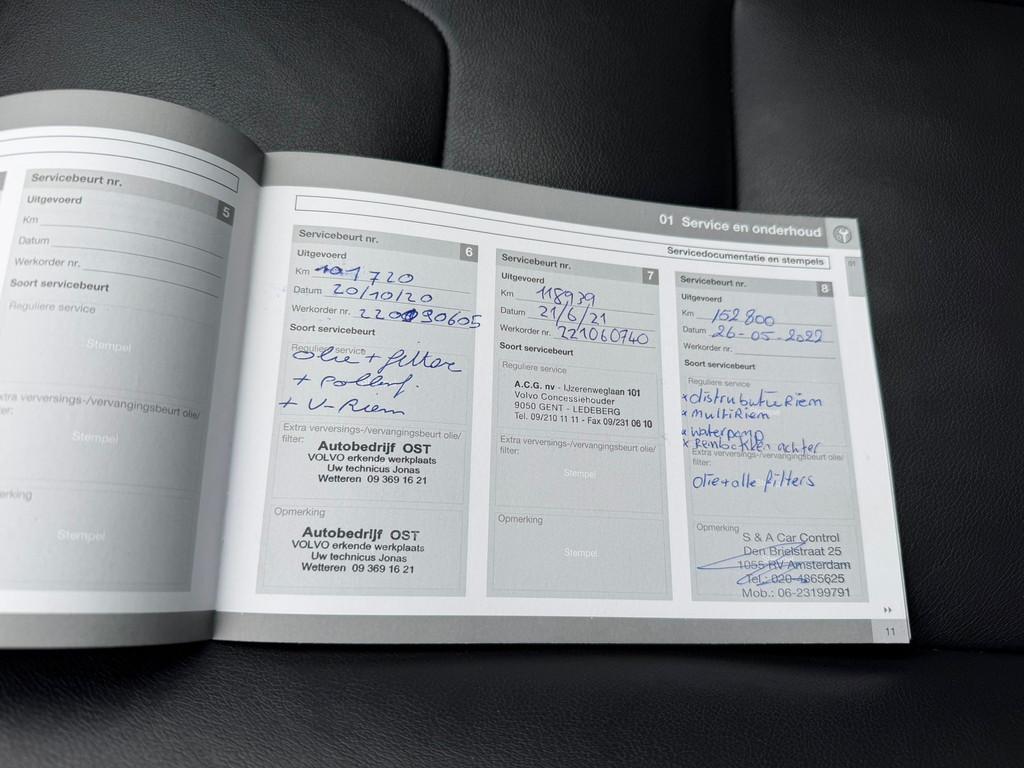 Servicebeurt nr.
5
Uitgevoerd
Km
Datum
Werkorder nr.
Soort servicebeurt
Reguliere service
Stempel
xtra verversings-/vervangingsbeurt olie/
er:
Stempel
erking
Stempel
01 Service en onderhoud
Servicedocumentatie en stempels
01
Servicebeurt nr.
6
Uitgevoerd
Km 101720
Datum 20/10/20
Werkorder nr.
Soort servicebeurt
Reguliere service
olie + filter
+ pollenf.
+ V-Riem
Extra verversings-/vervangingsbeurt olie/
filter:
Autobedrijf OST
VOLVO erkende werkplaats
Uw technicus Jonas
Wetteren 09 369 16 21
Opmerking
Autobedrijf OST
VOLVO erkende werkplaats
Uw technicus Jonas
Wetteren 09 369 16 21
Servicebeurt nr.
7
Uitgevoerd
Km 118939
Datum 21/6/21
Werkorder nr. 221060740
Soort servicebeurt
Reguliere service
A.C.G. nv - IJzerenweglaan 101
Volvo Concessiehouder
9050 GENT - LEDEBERG
Tel. 09/210 11 11 - Fax 09/231 06 10
Extra verversings-/vervangingsbeurt olie/
filter:
Stempel
Opmerking
Stempel
Servicebeurt nr.
8
Uitgevoerd
Km 152800
Datum 26-05-2022
Werkorder nr.
Soort servicebeurt
Reguliere service
x distrubutieRiem
x multiRiem
x waterpomp
x Remblokken achter
Extra verversings-/vervangingsbeurt olie/
filter:
olie+alle filters
Opmerking
S & A Car Control
Den Brielstraat 25
1055 RV Amsterdam
Tel.: 020-4865625
Mob.: 06-23199791
11